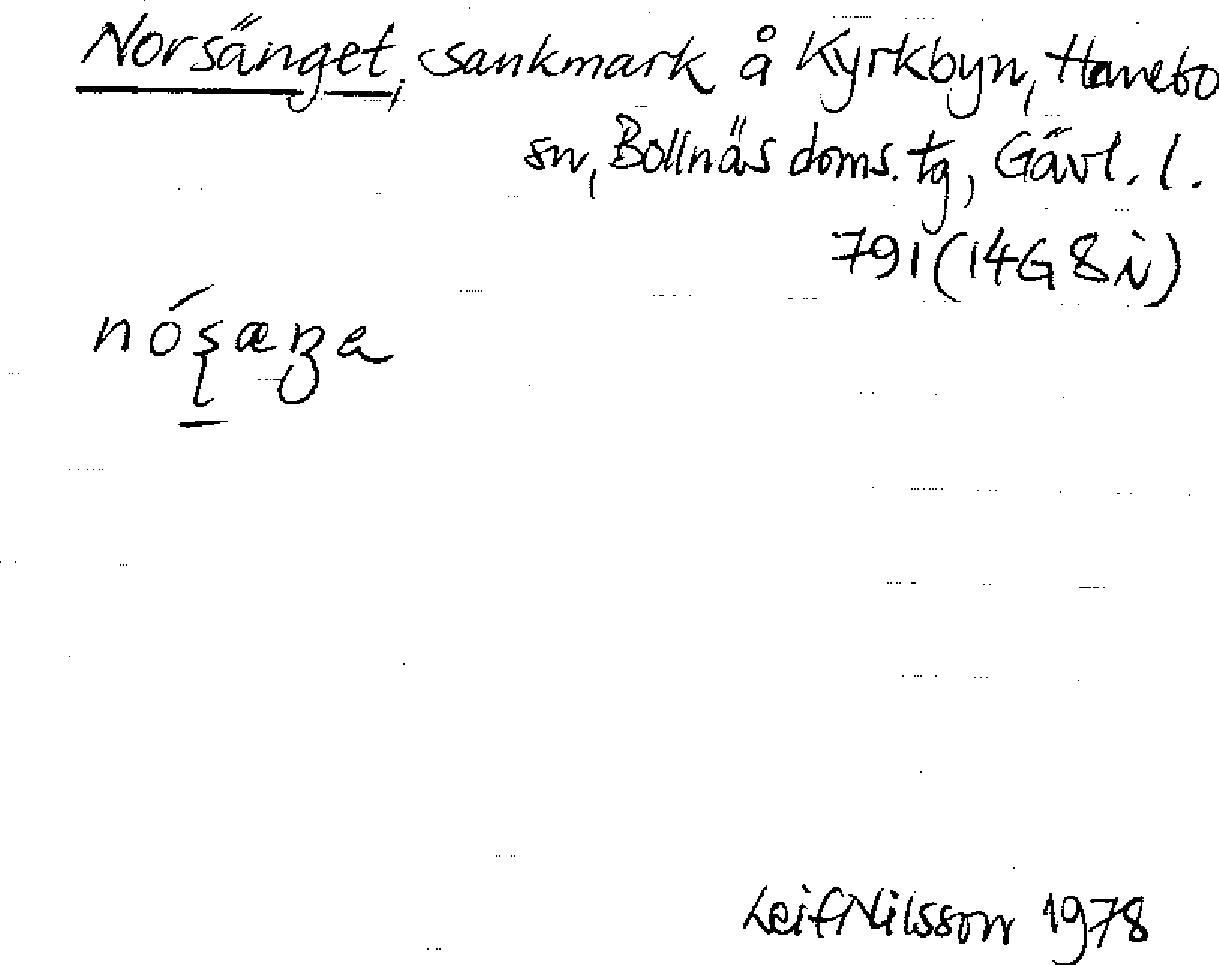 Norsänget, sankmark å Kyrkbyn, Hanebo
sn, Bollnäs doms. tg, Gävl. l.
791 (14G 8i)
Leif Nilsson 1978